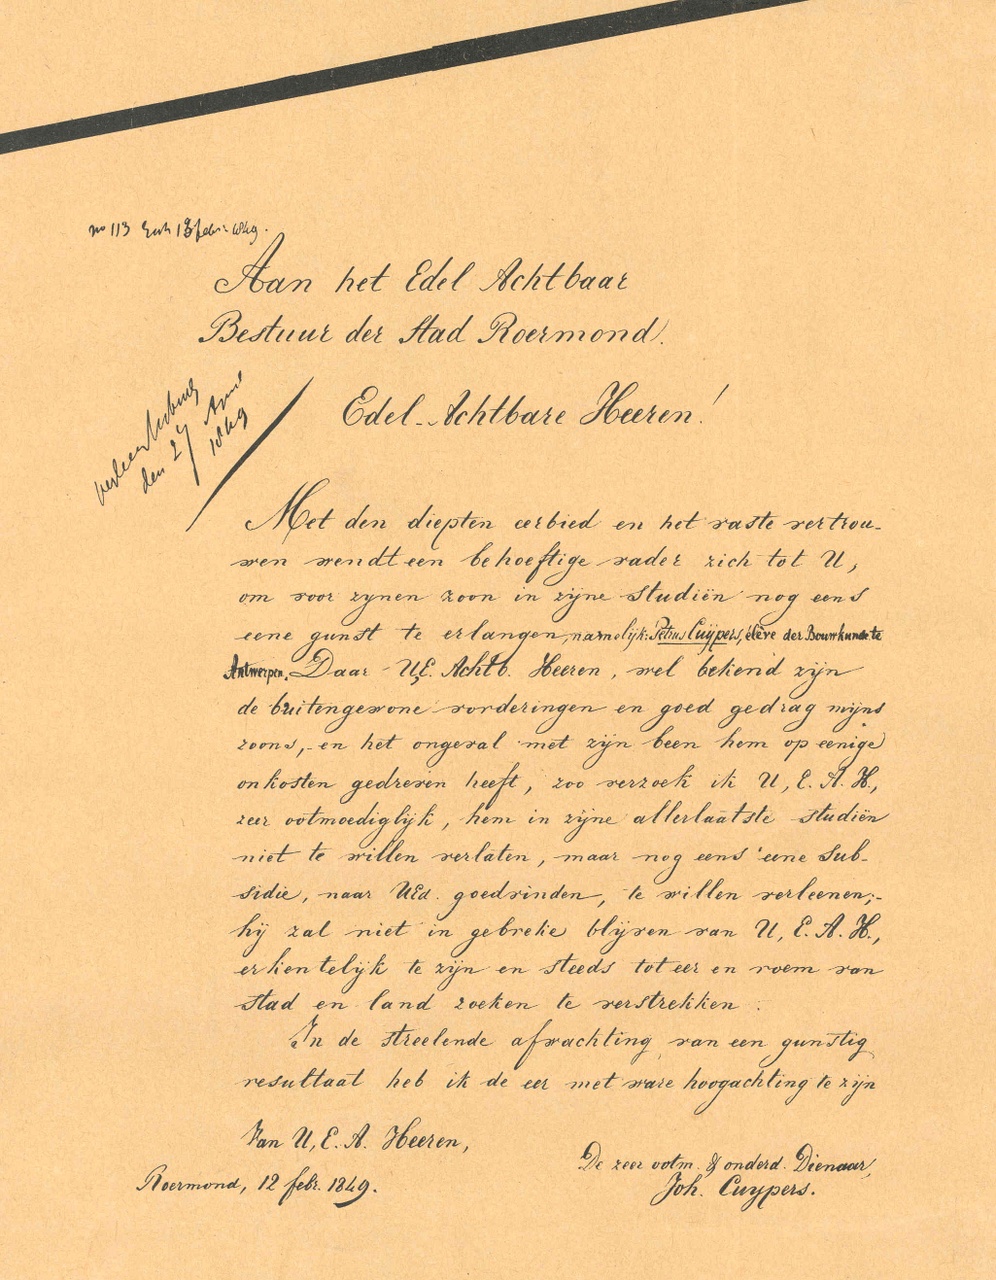 no 113 Exh 13 febr. 1849.
Aan het Edel Achtbaar
Bestuur der Stad Roermond.
den 27 April
1849
Edel-Achtbare Heeren!
Met den diepten eerbied en het vaste vertrou-
wen wendt een behoeftige vader zich tot U,
om voor zynen zoon in zijne studiën nog eens
eene gunst te erlangen, namelijk: Petrus Cuijpers, élève der Bouwkunde te
Antwerpen. Daar U,E. Achtb. Heeren, wel bekend zijn
de buitengewone vorderingen en goed gedrag mijns
zoons, - en het ongeval met zijn been hem op eenige
onkosten gedreven heeft, zoo verzoek ik U, E. A. H.,
zeer ootmoediglijk, hem in zijne allerlaatste studiën
niet te willen verlaten, maar nog eens eene sub-
sidie, naar UEd. goedvinden, te willen verleenen;-
hij zal niet in gebreke blijven van U, E. A. H.,
erkentelijk te zijn en steeds tot eer en roem van
stad en land zoeken te verstrekken.
In de streelende afwachting van een gunstig
resultaat heb ik de eer met ware hoogachting te zijn
Van U, E. A. Heeren,
De zeer ootm. & onderd. Dienaar,
Roermond, 12 febr. 1849.
Joh. Cuypers.